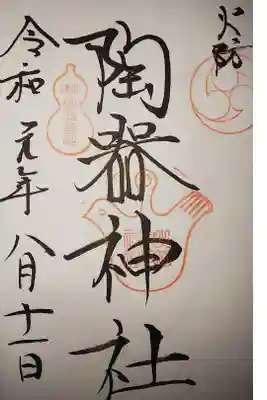 火防
陶器神社
令和元年八月十一日